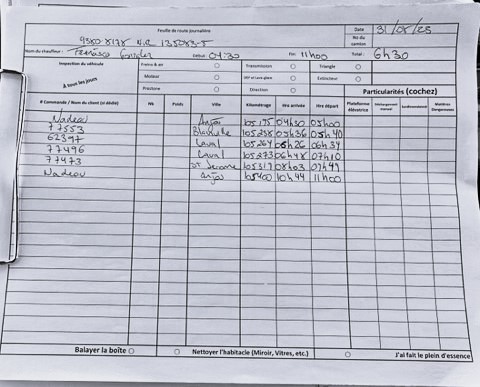 Feuille de route journalière
Date 31/08/25
9380-8178 N.R 135083-5
No du camion
Nom du chauffeur : Début 04:30 Fin 11h00 Total : 6h30
Inspection du véhicule
À tous les jours
Freins à air Transmission Triangle
Moteur DEF et Lave-glace Extincteur
Prestone Direction
Particularités (cochez)
# Commande / Nom du client (si dédié) Nb Poids Ville Kilométrage Hre arrivée Hre départ Plateforme élévatrice Déchargement manuel Surdimensionné Matières Dangereuses
Nadeau Anjou 105195 04h30 05h00
77553 Blainville 105238 05h36 05h40
62397 Laval 105264 06h26 06h34
77496 Laval 105273 06h48 07h10
77473 St Jerome 105317 08h03 09h49
Nadeau Anjou 105400 10h44 11h00
Balayer la boîte Nettoyer l'habitacle (Miroir, Vitres, etc.) J'ai fait le plein d'essence